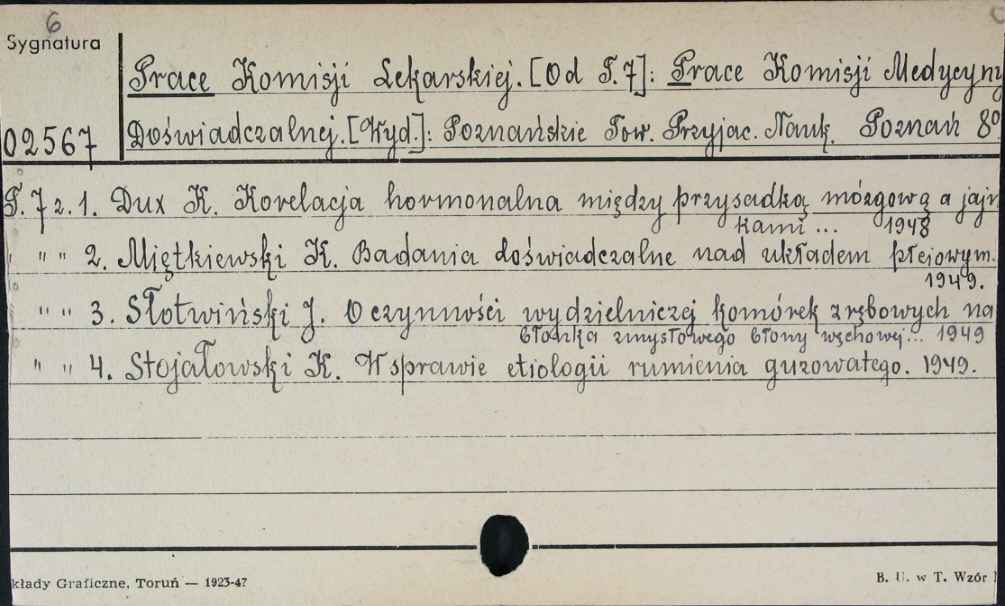 6
Sygnatura
Prace Komisji Lekarskiej. [Od T.7]: Prace Komisji Medycyny
02567 Doświadczalnej. [Wyd.]: Poznańskie Tow. Przyjac. Nauk. Poznań 8º
T. 7 z. 1. Dux K. Korelacja hormonalna między przysadką mózgową a jajn
kami ... 1948
" " " 2. Miętkiewski K. Badania doświadczalne nad układem płciowym.
1949.
" " 3. Słotwiński J. O czynności wydzielniczej komórek zrębowych na
błonka zmysłowego błony węchowej... 1949
" " 4. Stojałowski K. W sprawie etiologii rumienia guzowatego. 1949.
kłady Graficzne, Toruń — 1923-47
B. U. w T. Wzór